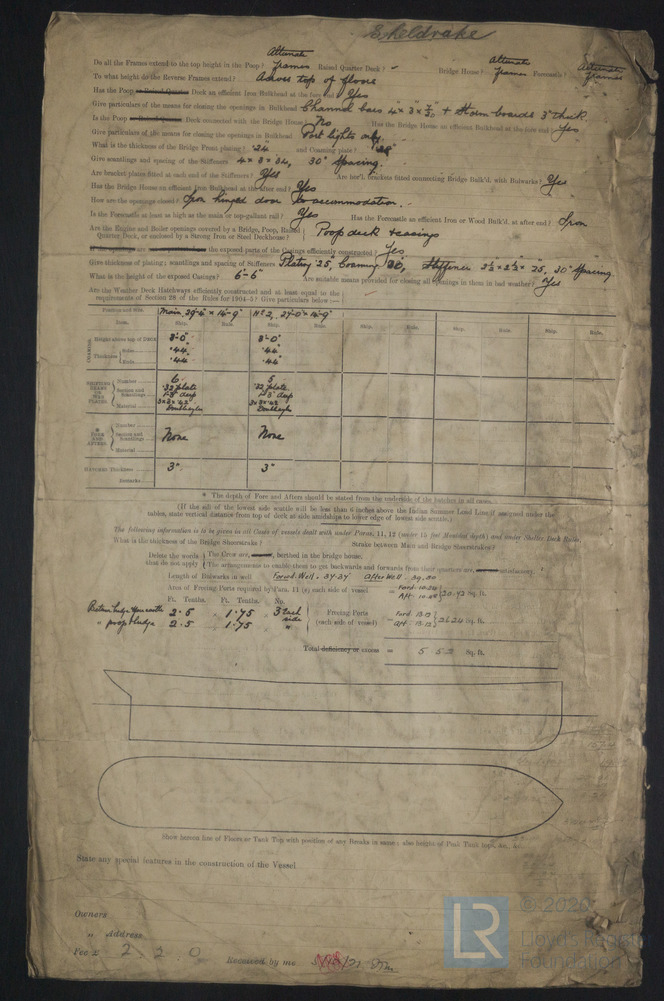 Sheldrake
Alternate Alternate Alternate
Do all the Frames extend to the top height in the Poop? frames Raised Quarter Deck? - Bridge House? frames Forecastle? frames
To what height do the Reverse Frames extend? Across top of floors
Has the Poop or Raised Quarter Deck an efficient Iron Bulkhead at the fore end? Yes
Give particulars of the means for closing the openings in Bulkhead Channel bars 4" x 3" x + Storm boards 3" thick.
Is the Poop Deck connected with the Bridge House? No Has the Bridge House an efficient Bulkhead at the fore end? Yes
Give particulars of the means for closing the openings in Bulkhead Port lights only.
What is the thickness of the Bridge Front plating? .24 and Coaming plate?
Give scantlings and spacing of the Stiffeners 4 x 3 x .34, 30" Spacing.
Are bracket plates fitted at each end of the Stiffeners? Yes Are hor'l. brackets fitted connecting Bridge Bulk'd. with Bulwarks? Yes
Has the Bridge House an efficient Iron Bulkhead at the after end? Yes
How are the openings closed? Iron hinged door to accommodation.
Is the Forecastle at least as high as the main or top-gallant rail? Yes Has the Forecastle an efficient Iron or Wood Bulk'd. at after end? Iron
Are the Engine and Boiler openings covered by a Bridge, Poop, Raised Quarter Deck, or enclosed by a Strong Iron or Steel Deckhouse? Poop deck & casings
the exposed parts of the Casings efficiently constructed? Yes
Give thickness of plating; scantlings and spacing of Stiffeners Plating .25, Coaming .30, Stiffener 2½ x 2½ x .25, 30" Spacing.
What is the height of the exposed Casings? 6'-6" Are suitable means provided for closing all openings in them in bad weather? Yes
Are the Weather Deck Hatchways efficiently constructed and at least equal to the
requirements of Section 28 of the Rules for 1904-5? Give particulars below:—
Position and Size. Main, 29'-4" x 14'-9" No 2, 27'-0" x 14'-9"
Item. Ship. Rule. Ship. Rule. Ship. Rule. Ship. Rule. Ship. Rule.
COAMING Height above top of DECK 3'-0" 3'-0"
Thickness Sides .44 .44
Ends .44 .44
SHIFTING BEAMS OR WEB PLATES Number 6 5
Section and Scantlings .32 plate .32 plate
3 x 3 x .42 3 x 3 x .42
Material Double angles Double angles
* FORE AND AFTERS Number
Section and Scantlings None None
Material
HATCHES Thickness 3" 3"
Remarks
* The depth of Fore and Afters should be stated from the underside of the hatches in all cases.
(If the sill of the lowest side scuttle will be less than 6 inches above the Indian Summer Load Line if assigned under the
tables, state vertical distance from top of deck at side amidships to lower edge of lowest side scuttle.)
The following information is to be given in all Cases of vessels dealt with under Paras. 11, 12 (under 15 feet Moulded depth) and under Shelter Deck Rules.
What is the thickness of the Bridge Sheerstrake? Strake between Main and Bridge Sheerstrakes?
Delete the words that do not apply { The Crew are, berthed in the bridge house.
The arrangements to enable them to get backwards and forwards from their quarters are, satisfactory.
Length of Bulwarks in well Forwd. Well. 37.27' After Well 39.20
Area of Freeing Ports required by Para. 11 (e) each side of vessel = Ford. 10.20 Aft. 10.53 } 20.72 Sq. ft.
Ft. Tenths. Ft. Tenths. No.
2.5 x 1.75 3 Each side
" poop & bridge 2.5 1.75 "
Freeing Ports (each side of vessel) = Ford. 13.12 Aft. 13.12 } 26.24 Sq. ft.
Total deficiency or excess = 5 52 Sq. ft.
Show hereon line of Floors or Tank Top with position of any Breaks in same; also heights of Peak Tank tops, &c. &c.
State any special features in the construction of the Vessel
Owners
" Address
Fee £ 2. 2. 0 Received by me
© 2020
LR
Lloyd's Register
Foundation